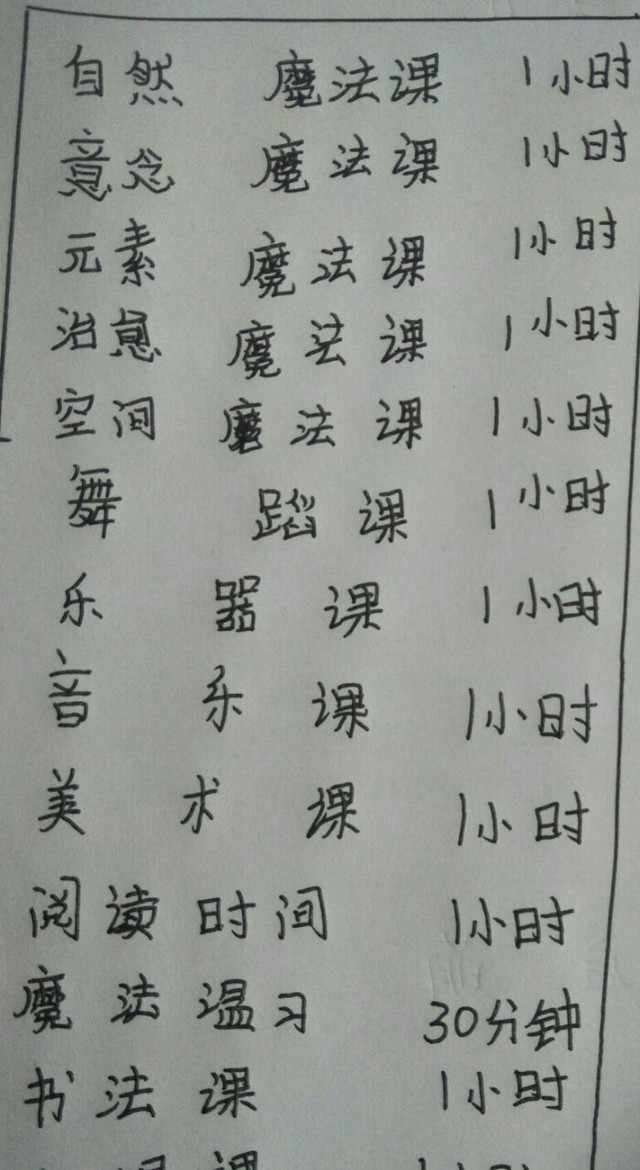 自然 魔法课 1小时
意念 魔法课 1小时
元素 魔法课 1小时
治愈 魔法课 1小时
空间 魔法课 1小时
舞 蹈 课 1小时
乐 器 课 1小时
音 乐 课 1小时
美 术 课 1小时
阅读时间 1小时
魔法温习 30分钟
书法课 1小时
课